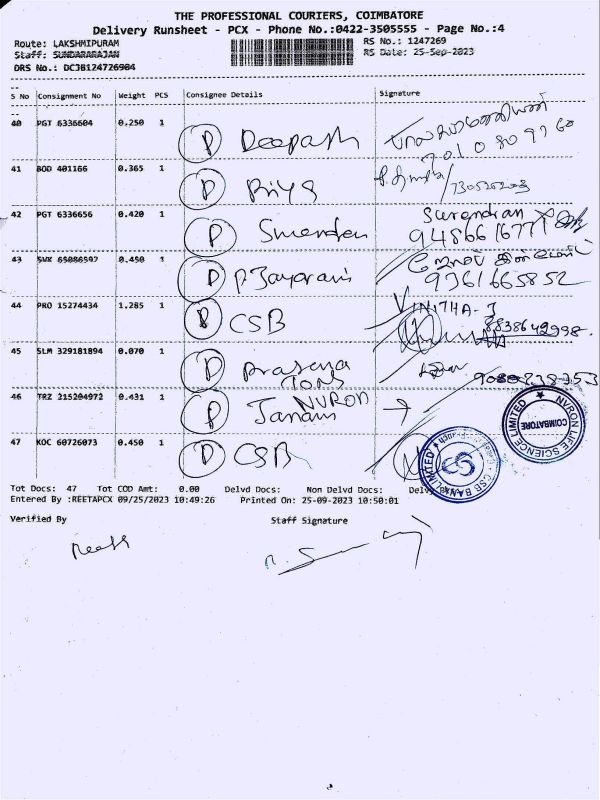 THE PROFESSIONAL COURIERS, COIMBATORE
Delivery Runsheet - PCX - Phone No.:0422-3505555 - Page No.:4
Route: LAKSHMIPURAM RS No.: 1247269
Staff: SUNDARARAJAN RS Date: 25-Sep-2023
DRS No.: DCJB124726904
S No Consignment No Weight PCS Consignee Details Signature
40 PGT 6336604 0.250 1 D Deepash
70108097
41 BOD 401166 0.365 1 D Priya
42 PGT 6336656 0.420 1 D Surenden Surendran
9486616771
43 SVK 65086597 0.450 1 D P. Jayarani
9361665852
44 PRO 15274434 1.285 1 D CSB VINITHA-J
8838642998
45 SLM 329181894 0.070 1 D
46 TRZ 215204972 0.431 1 D NVRON
COIMBATORE
NVRON LIFE SCIENCE LIMITED
47 KOC 60726073 0.450 1 D CSB
CSB BANK LIMITED
Tot Docs: 47 Tot COD Amt: 0.00 Delvd Docs: Non Delvd Docs:
Entered By :REETAPCX 09/25/2023 10:49:26 Printed On: 25-09-2023 10:50:01
Verified By Staff Signature